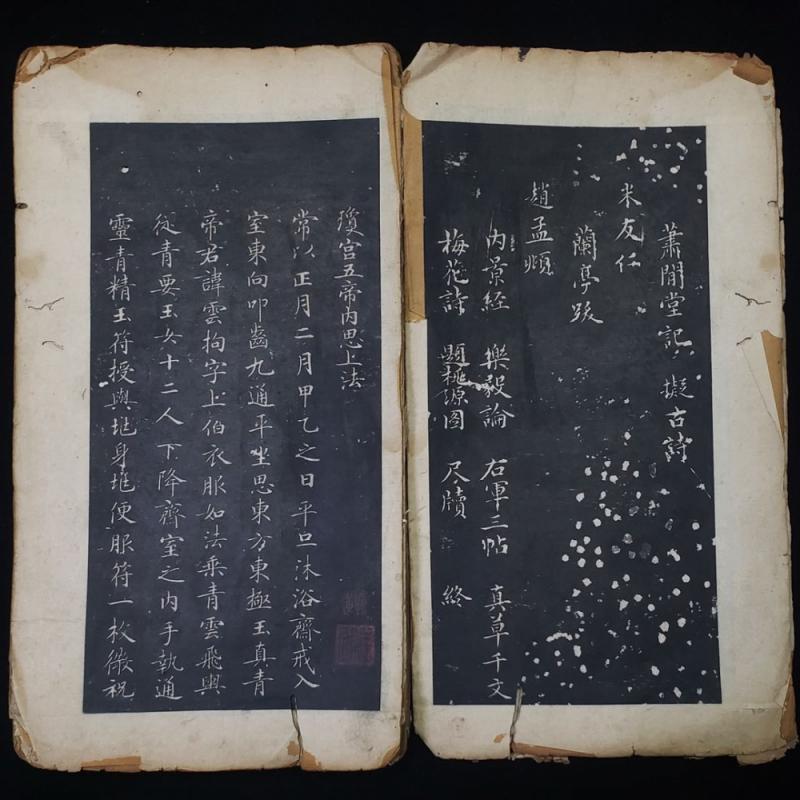 蕭閒堂記 擬古詩
米友仁
蘭亭跋
趙孟頫
內景經 樂毅論 右軍三帖 真草千文
梅花詩 題桃源图 尺牘 終
瓊宮五帝內思上法
常以正月二月甲乙之日平旦沐浴齋戒入
室東向叩齒九通平坐思東方東極玉真青
帝君諱雲拘字上伯衣服如法乘青雲飛輿
從青要玉女十二人下降齋室之內手執通
靈青精玉符授與兆身兆便服符一枚微祝